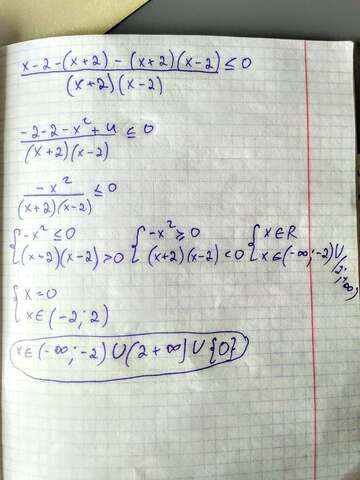 x-2-(x+2)-(x+2)(x-2) / (x+2)(x-2) ≤ 0
-2-2-x²+4 / (x+2)(x-2) ≤ 0
-x² / (x+2)(x-2) ≤ 0
{ -x² ≤ 0 { -x² ≥ 0 { x∈R
(x+2)(x-2) > 0 (x+2)(x-2) < 0 x∈(-∞;-2)U(2;+∞)
{ x=0
x∈(-2;2)
x∈(-∞;-2)U(2+∞)U{0}